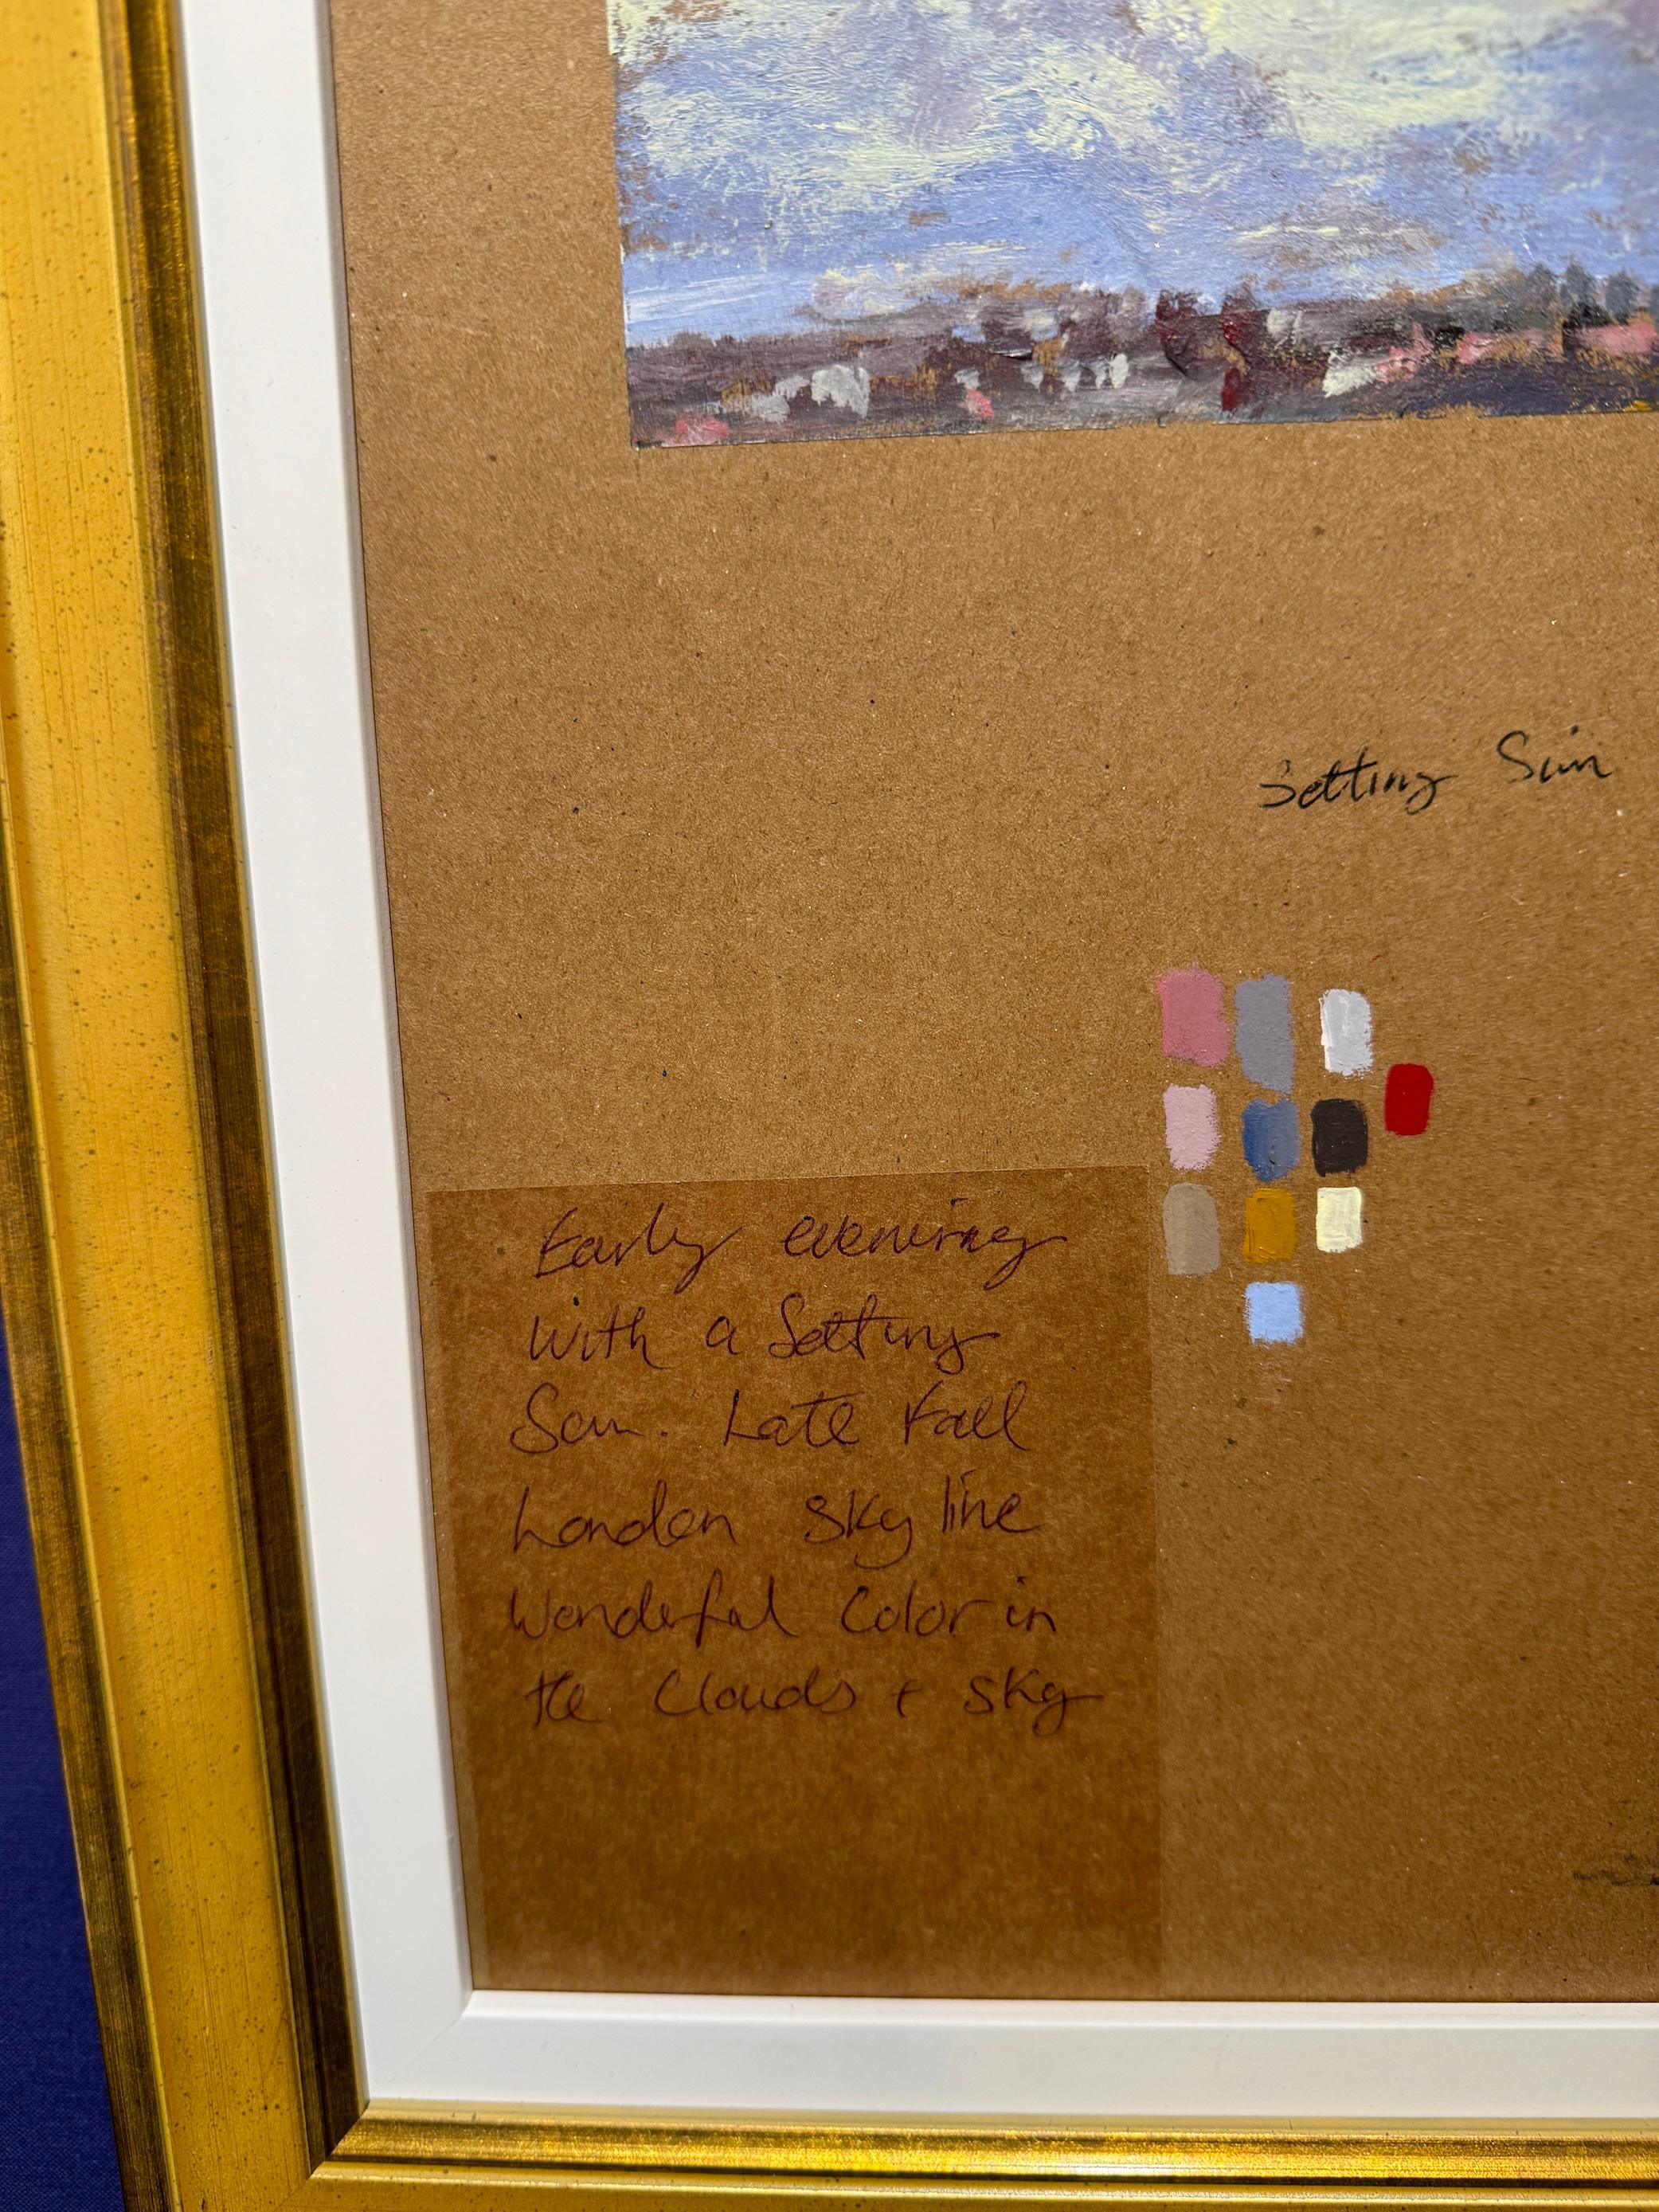 Setting Sun
Early evening
with a Setting
Sun. Late Fall
London Sky line
Wonderful Color in
the Clouds + Sky